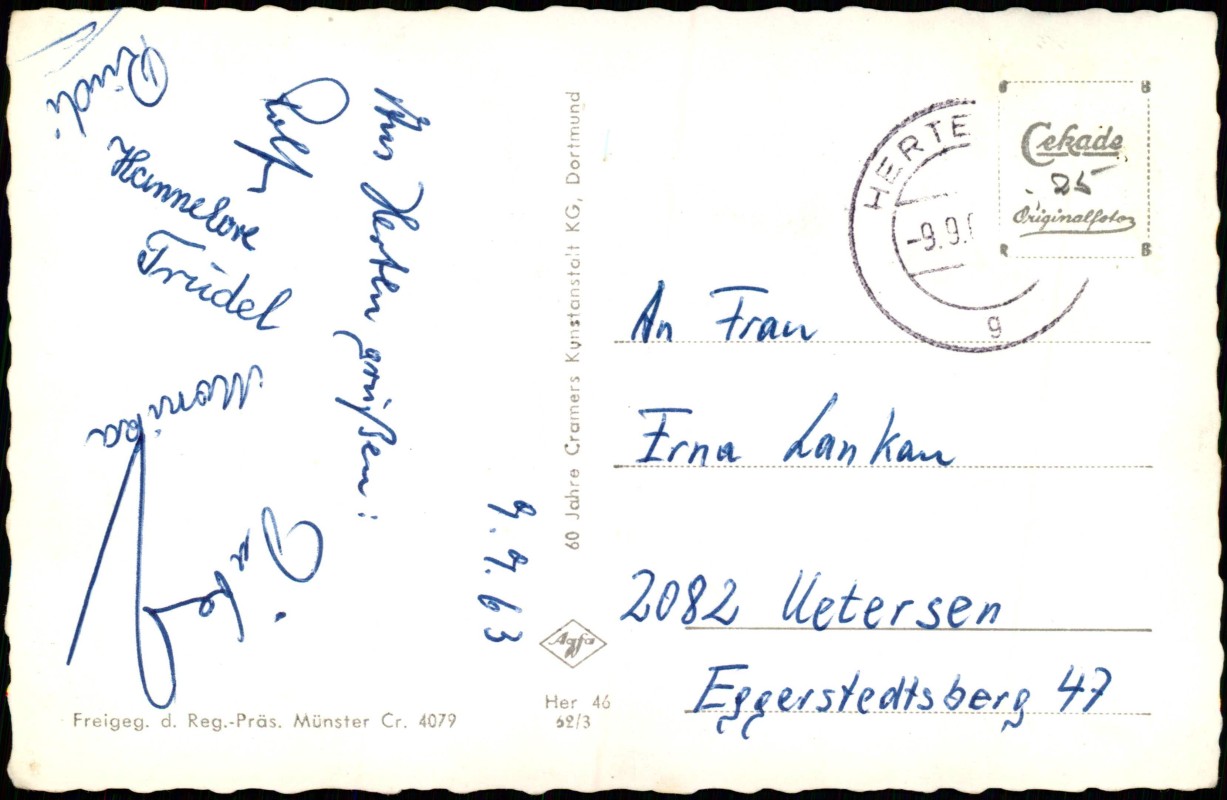 Aus Herten grüßen:
Rolf
Hannelore
Trudel
Rudi
Monika
9.9.63
60 Jahre Cramers Kunstanstalt KG, Dortmund
Agfa
Her 46
62/3
Freigeg. d. Reg.-Präs. Münster Cr. 4079
HERTE
-9.9.
g
Cekade
25
Originalfoto
An Frau
Erna Lankau
2082 Uetersen
Eggerstedtsberg 47